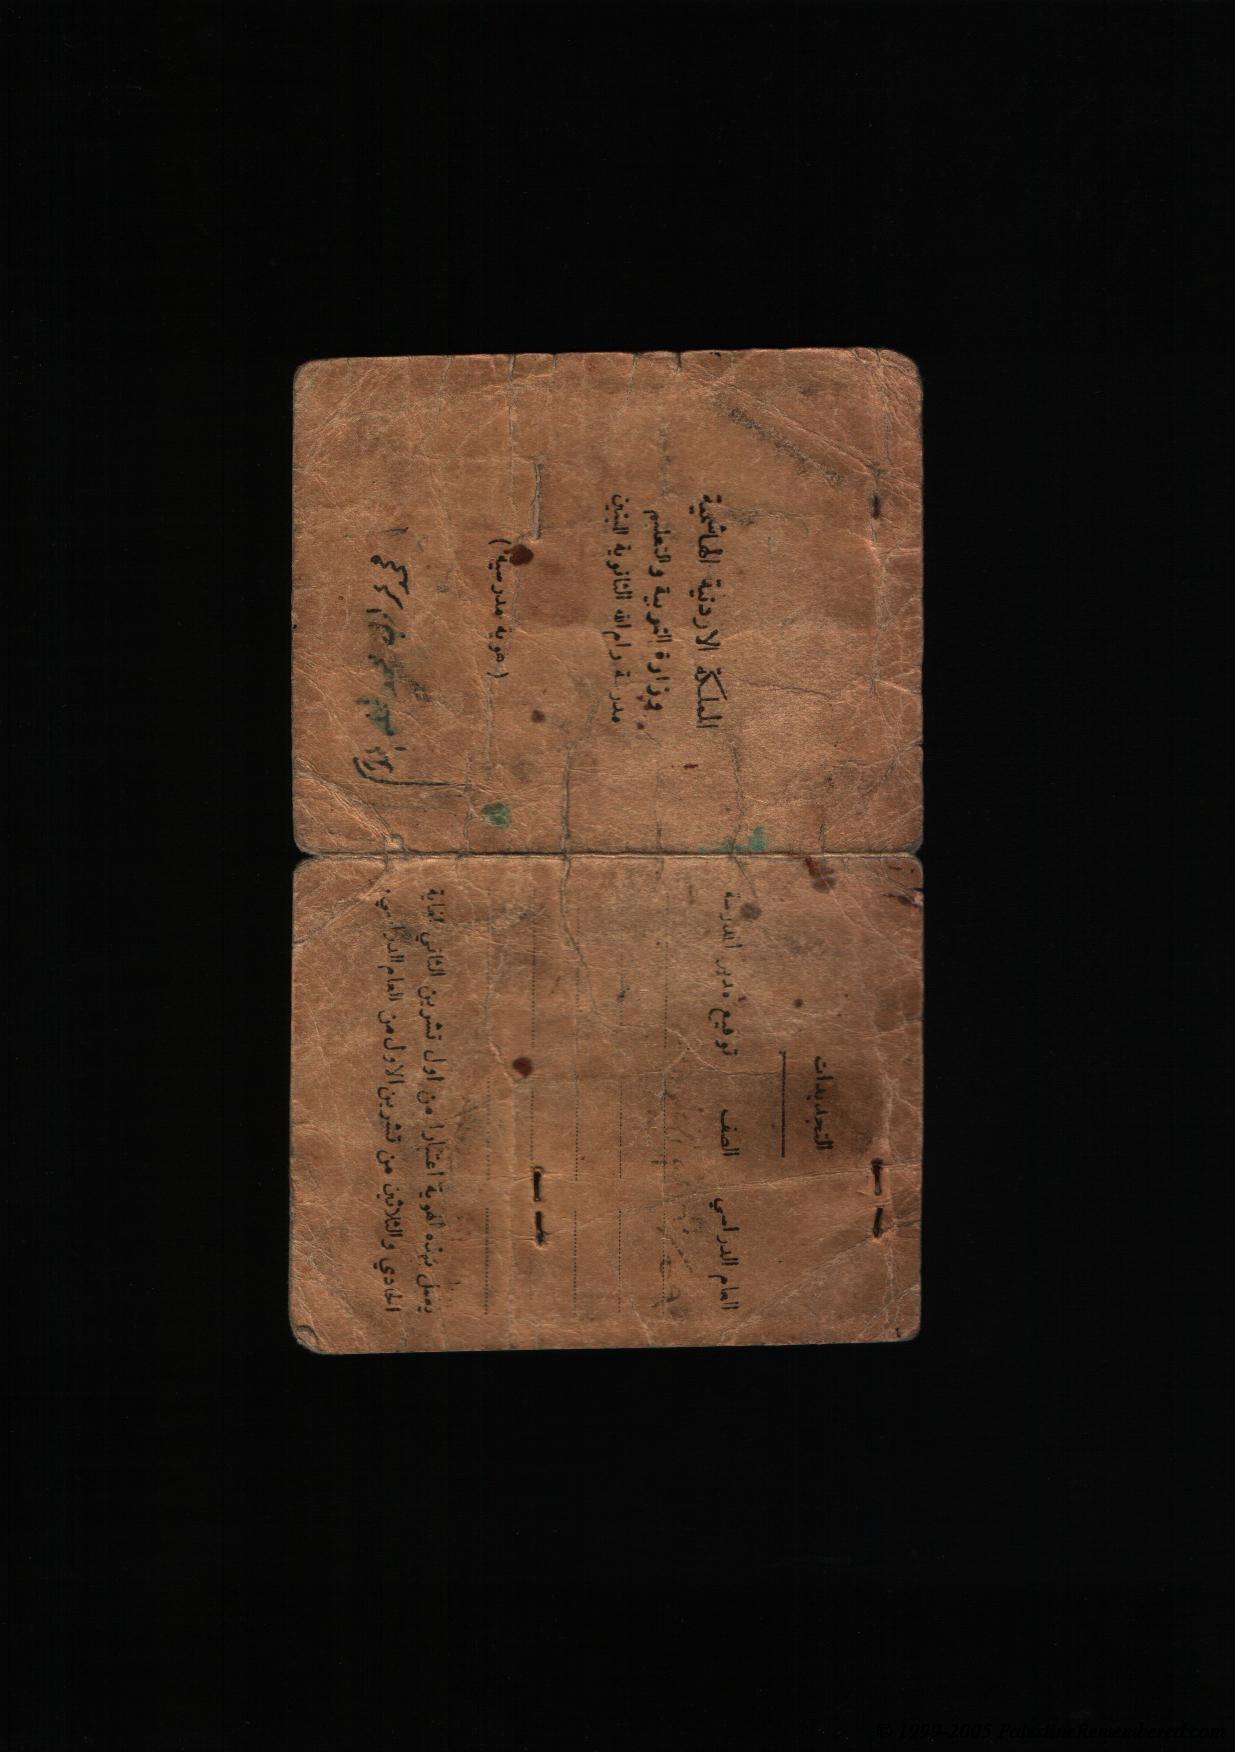 المملكة الاردنية الهاشمية
وزارة التربية والتعليم
مدرسة رام الله الثانوية للبنين
( هوية مدرسية )
التجديدات
العام الدراسي الصف توقيع مدير المدرسة
يعمل بهذه الهوية اعتبارا من اول تشرين الثاني لغاية
الحادي والثلاثين من تشرين الاول من العام الدراسي.
© 1999-2005 PalestineRemembered.com